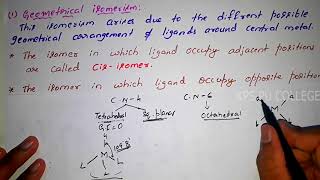 (1) Geometrical isomerism:
This isomerism arises due to the different possible
geometrical arrangement of ligands around central metal.
* The isomer in which ligand occupy adjacent positions
are called Cis-isomer.
* The isomer in which ligand occupy opposite position
C.N-4 C.N-6
Tetrahedral Sq. planar Octahedral
KPS PU COLLEGE
M M
L L